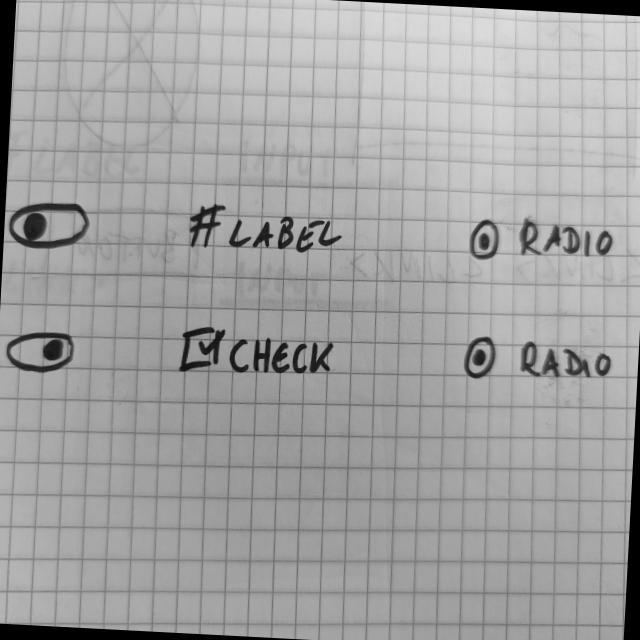 #LABEL RADIO
CHECK RADIO